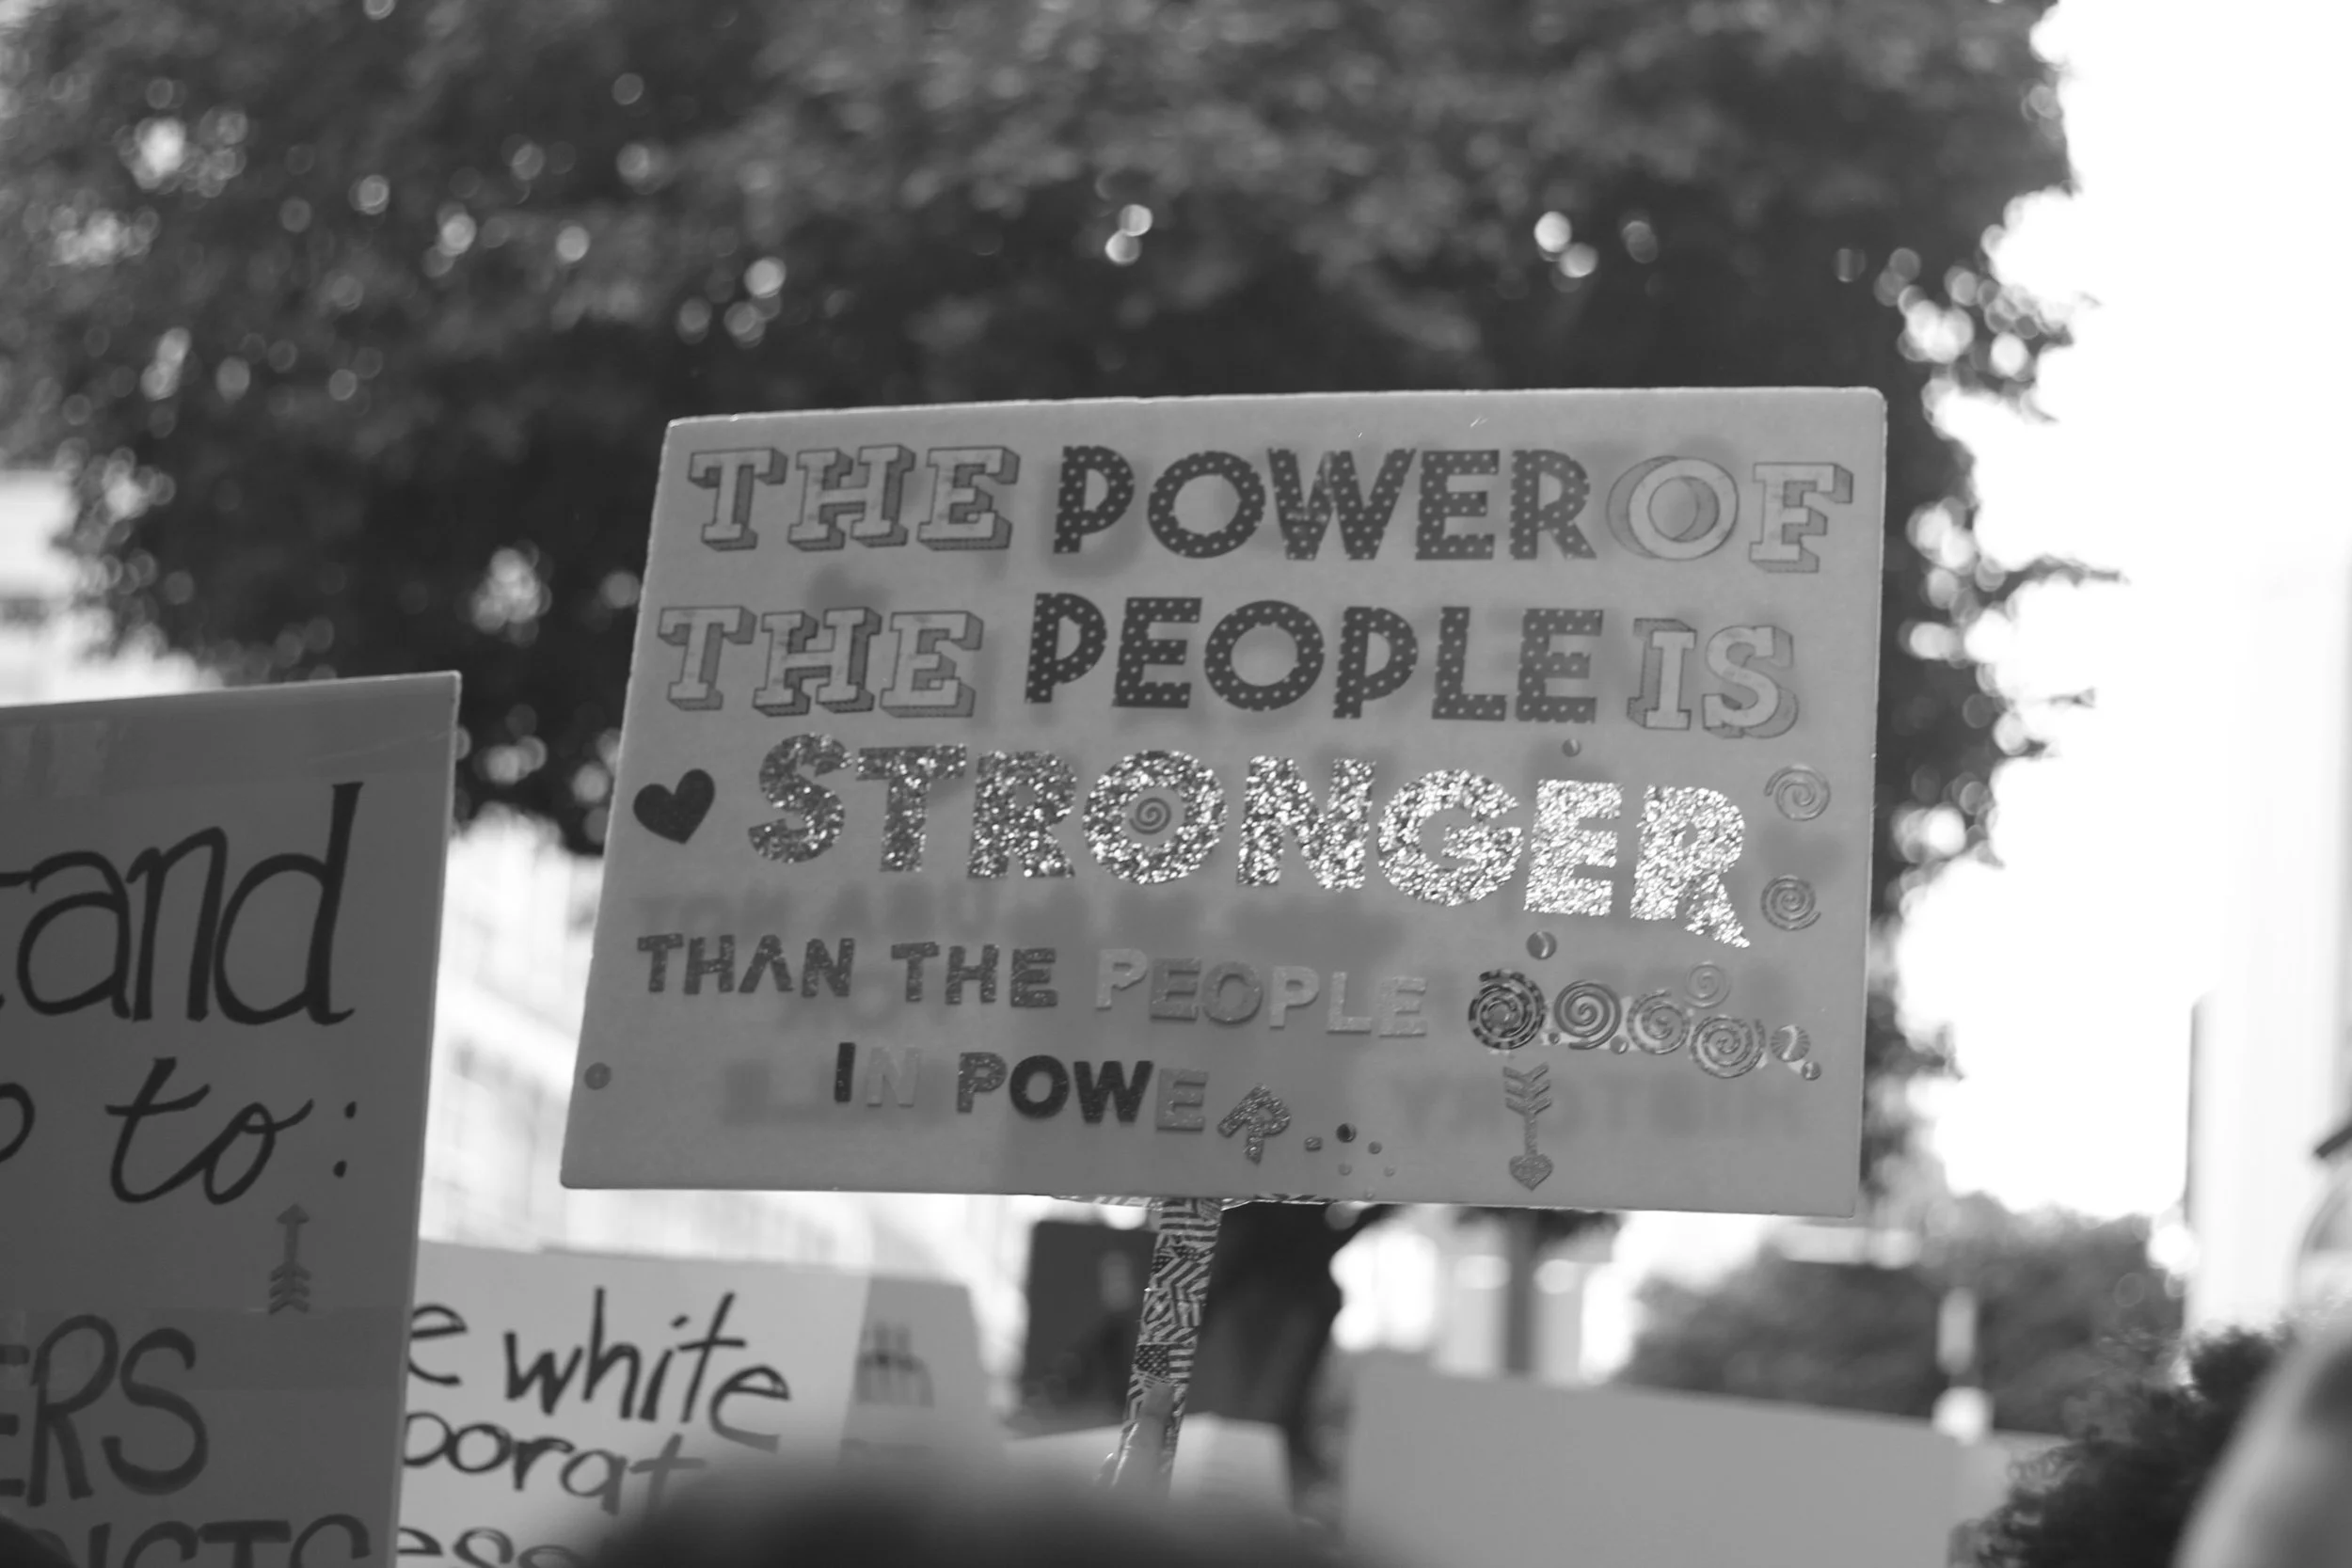 THE POWER OF
THE PEOPLE IS
STRONGER
THAN THE PEOPLE
IN POWER
to:
white